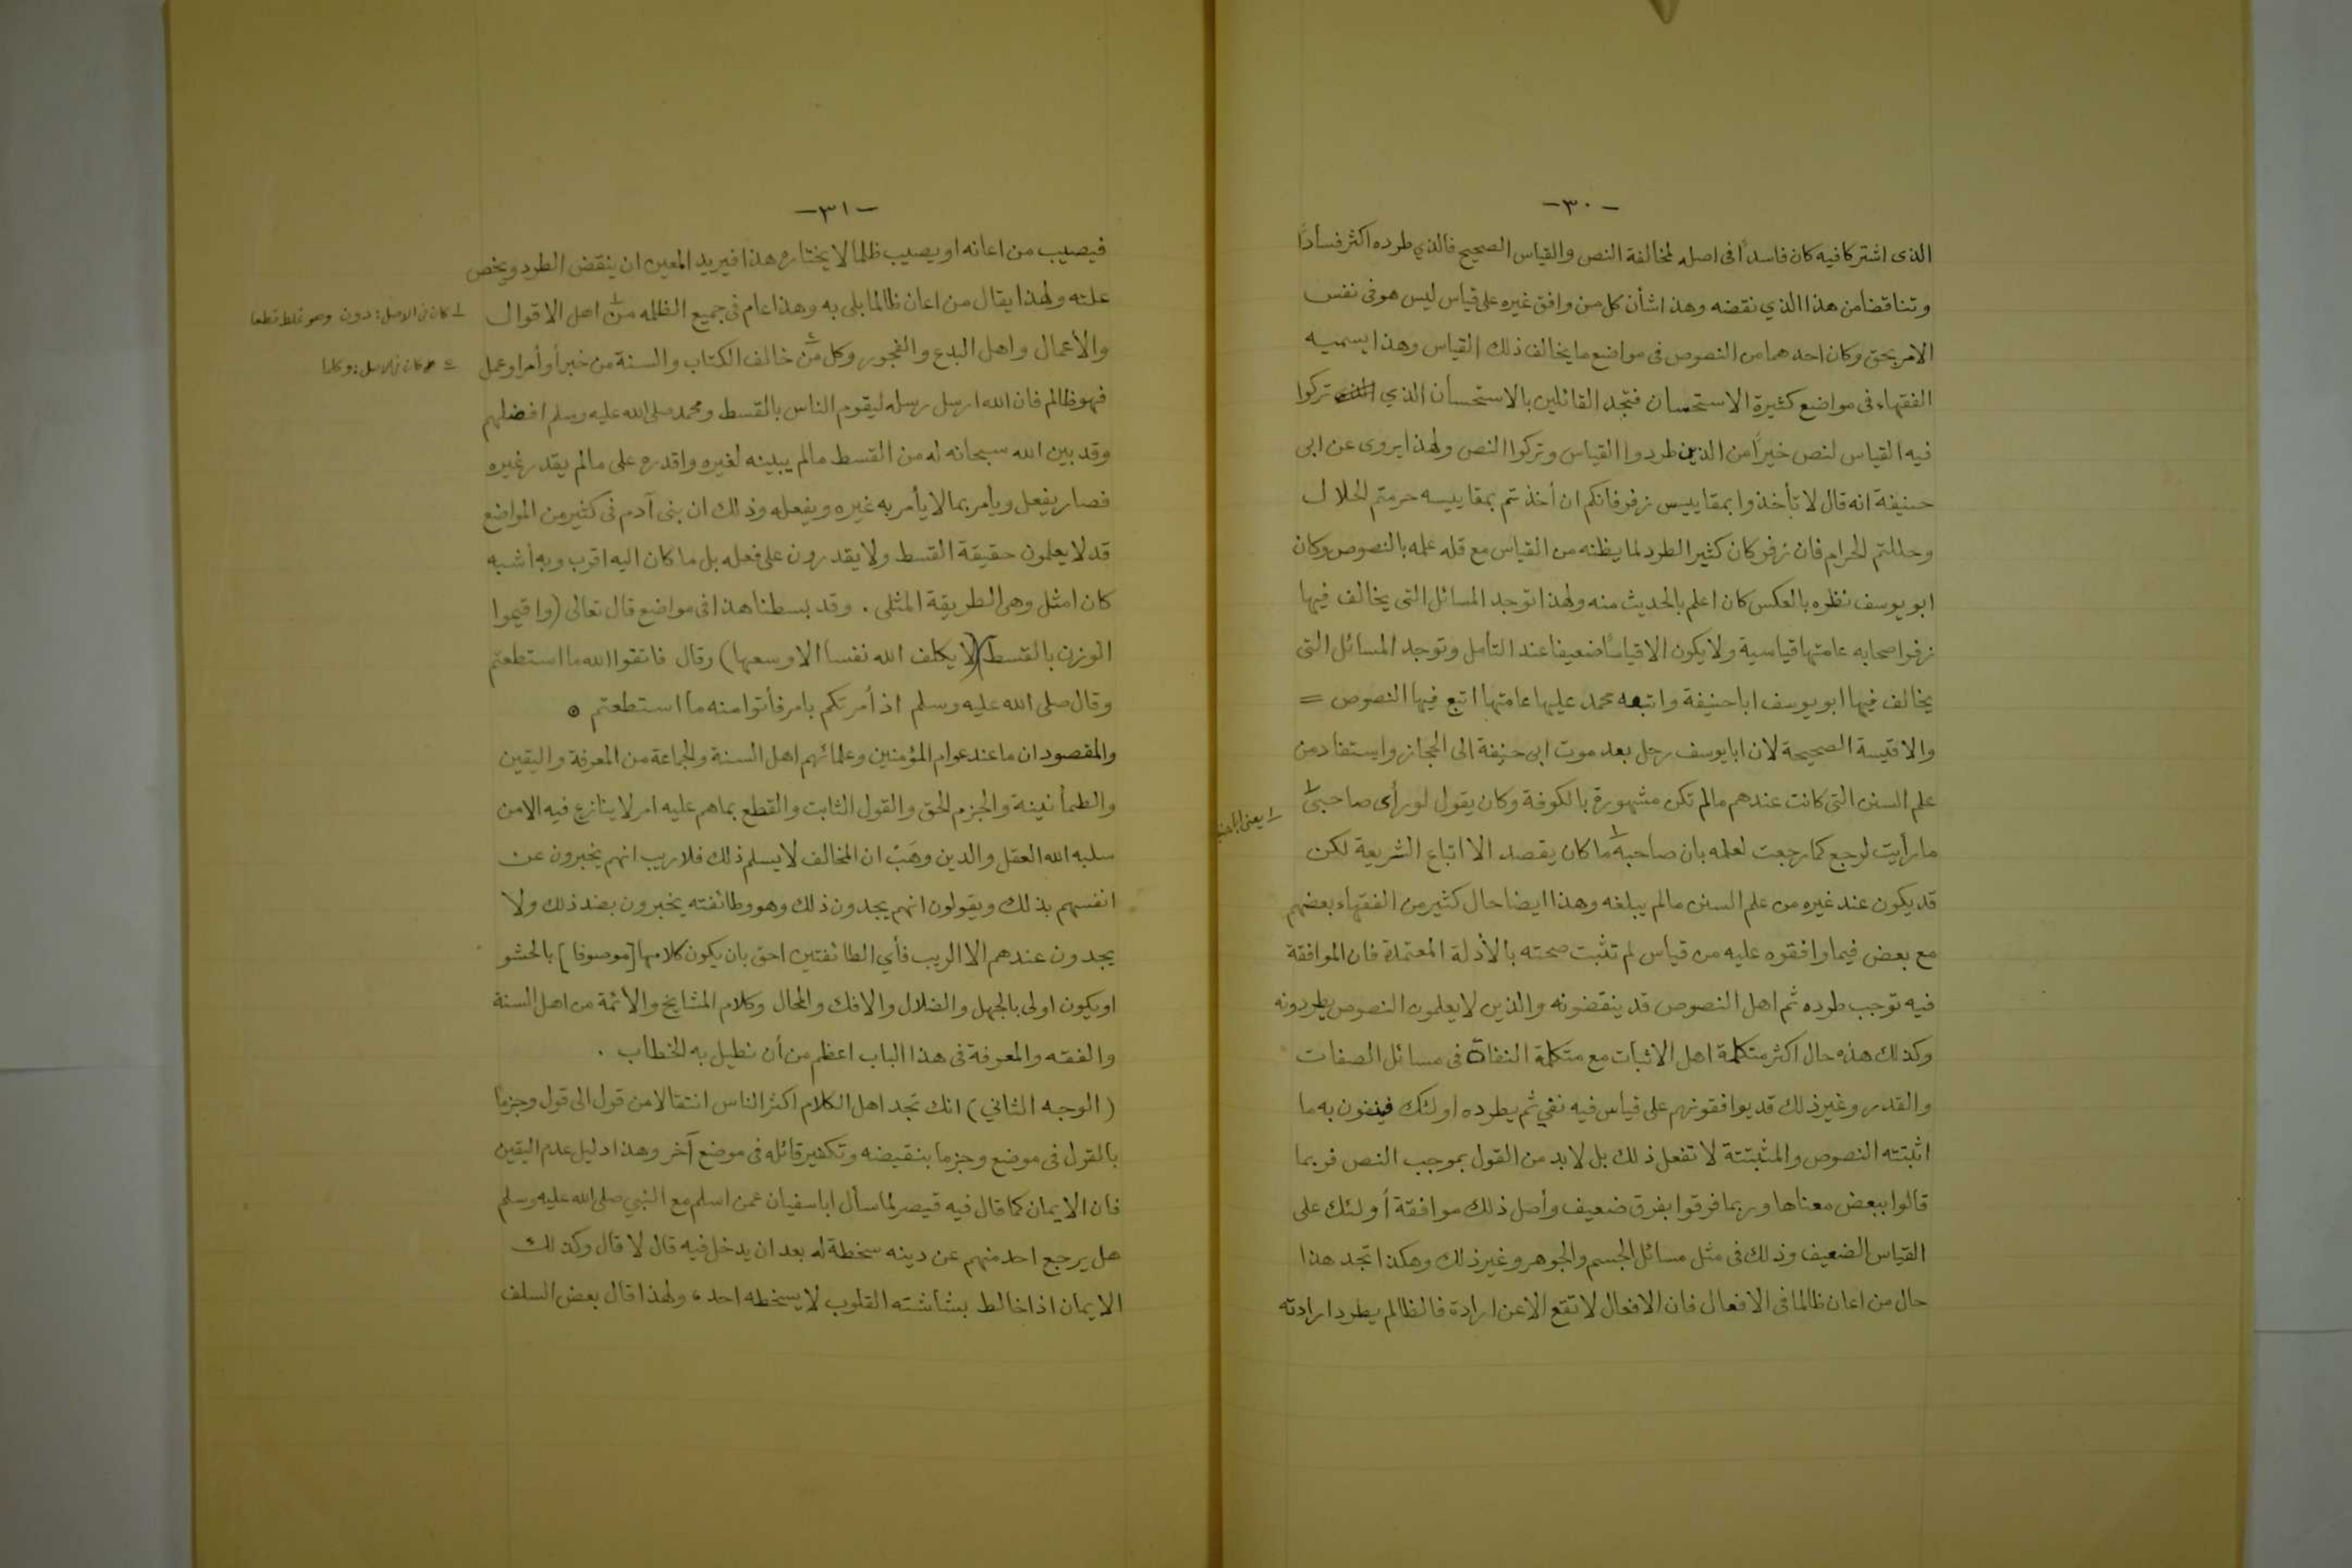 -٣٠-
الذى اشتركا فيه كان فاسداً فى اصله لمخالفة النص والقياس الصحيح فالذي طرده اكثر فساداً
وتناقضا من هذا الذي نقضه وهذا شأن كل من وافق غيره على قياس ليس هو فى نفس
الامر بحق وكان احدهما من النصوص فى مواضع ما يخالف ذلك القياس وهذا يسميه
الفقهاء فى مواضع كثيرة الاستحسان فتجد القائلين بالاستحسان الذي تركوا
فيه القياس لنص خيراً من الذين طردوا القياس وتركوا النص ولهذا يروى عن ابى
حنيفة انه قال لا تأخذوا بمقاييس زفر فانكم ان أخذتم بمقاييسه حرمتم الحلال
وحللتم الحرام فان زفر كان كثير الطرد لما يظنه من القياس مع قله علمه بالنصوص وكان
ابو يوسف نظره بالعكس كان اعلم بالحديث منه ولهذا توجد المسائل التى يخالف فيها
زفر اصحابه عامتها قياسية ولا يكون الا قياساً ضعيفا عند التأمل وتوجد المسائل التى
يخالف فيها ابو يوسف ابا حنيفة واتبعه محمد عليها عامتها اتبع فيها النصوص =
والاقيسة الصحيحة لان ابا يوسف رحل بعد موت ابى حنيفة الى الحجاز واستفاد من
علم السنن التى كانت عندهم ما لم تكن مشهورة بالكوفة وكان يقول لو رأى صاحبى ١
١ يعنى ابا
ما رأيت لرجع كما رجعت لعلمه بان صاحبه ١ ما كان يقصد الا اتباع الشريعة لكن
قد يكون عند غيره من علم السنن ما لم يبلغه وهذا ايضا حال كثير من الفقهاء بعضهم
مع بعض فيما وافقوه عليه من قياس لم تثبت صحته بالأدلة المعتمدة فان الموافقة
فيه توجب طرده ثم اهل النصوص قد ينقضونه والذين لا يعلمون النصوص يطردونه
وكذلك هذه حال اكثر متكلمة اهل الاثبات مع متكلمة النفاة فى مسائل الصفات
والقدر وغير ذلك قد يوافقونهم على قياس فيه نفي ثم يطرده اولئك فينفون به ما
اثبتته النصوص والمثبتة لا تفعل ذلك بل لا بد من القول بموجب النص فربما
قالوا ببعض معناها وربما فرقوا بفرق ضعيف وأصل ذلك موافقة أولئك على
القياس الضعيف وذلك فى مثل مسائل الجسم والجوهر وغير ذلك وهكذا تجد هذا
حال من اعان ظالما فى الافعال فان الافعال لا تقع الا عن ارادة فالظالم يطرد ارادته
-٣١-
فيصيب من اعانه او يصيب ظلما لا يختاره هذا فيريد المعين ان ينقض الطرد ويخص
علته ولهذا يقال من اعان ظالما بلى به وهذا عام فى جميع الظلمه من ١ اهل الاقوال
١ كان فى الاصل: دون وهو غلط قطعا
والأعمال واهل البدع والفجور وكل من ٢ خالف الكتاب والسنة من خبر أو أمر او عمل
٢ كان فى الاصل: وكلما
فهو ظالم فان الله ارسل رسله ليقوم الناس بالقسط ومحمد صلى الله عليه وسلم افضلهم
وقد بين الله سبحانه له من القسط ما لم يبينه لغيره واقدره على ما لم يقدر غيره
فصار يفعل ويأمر بما لا يأمر به غيره ويفعله وذلك ان بنى آدم فى كثير من المواضع
قد لا يعلمون حقيقة القسط ولا يقدرون على فعله بل ما كان اليه اقرب وبه أشبه
كان امثل وهى الطريقة المثلى . وقد بسطنا هذا فى مواضع قال تعالى (واقيموا
الوزن بالقسط)(لا يكلف الله نفسا الا وسعها) وقال فاتقوا الله ما استطعتم
وقال صلى الله عليه وسلم اذا أمرتكم بامر فأتوا منه ما استطعتم ⊙
والمقصود ان ما عند عوام المؤمنين وعلمائهم اهل السنة والجماعة من المعرفة واليقين
والطمأنينة والجزم الحق والقول الثابت والقطع بما هم عليه امر لا ينازع فيه الا من
سلبه الله العقل والدين وهَبْ ان المخالف لا يسلم ذلك فلا ريب انهم يخبرون عن
انفسهم بذلك ويقولون انهم يجدون ذلك وهو وطائفته يخبرون بضد ذلك ولا
يجدون عندهم الا الريب فأي الطائفتين احق بان يكون كلامها [موصوفا] بالحشو
او يكون اولى بالجهل والضلال والافك والمحال وكلام المشايخ والأئمة من اهل السنة
والفقه والمعرفة فى هذا الباب اعظم من أن نطيل به الخطاب .
(الوجه الثاني) انك تجد اهل الكلام اكثر الناس انتقالا من قول الى قول وجزما
بالقول فى موضع وجزما بنقيضه وتكفير قائله فى موضع آخر وهذا دليل عدم اليقين
فان الايمان كما قال فيه قيصر لما سأل ابا سفيان عمن اسلم مع النبي صلى الله عليه وسلم
هل يرجع احد منهم عن دينه سخطة له بعد ان يدخل فيه قال لا قال وكذلك
الايمان اذا خالط بشاشته القلوب لا يسخطه احد، ولهذا قال بعض السلف